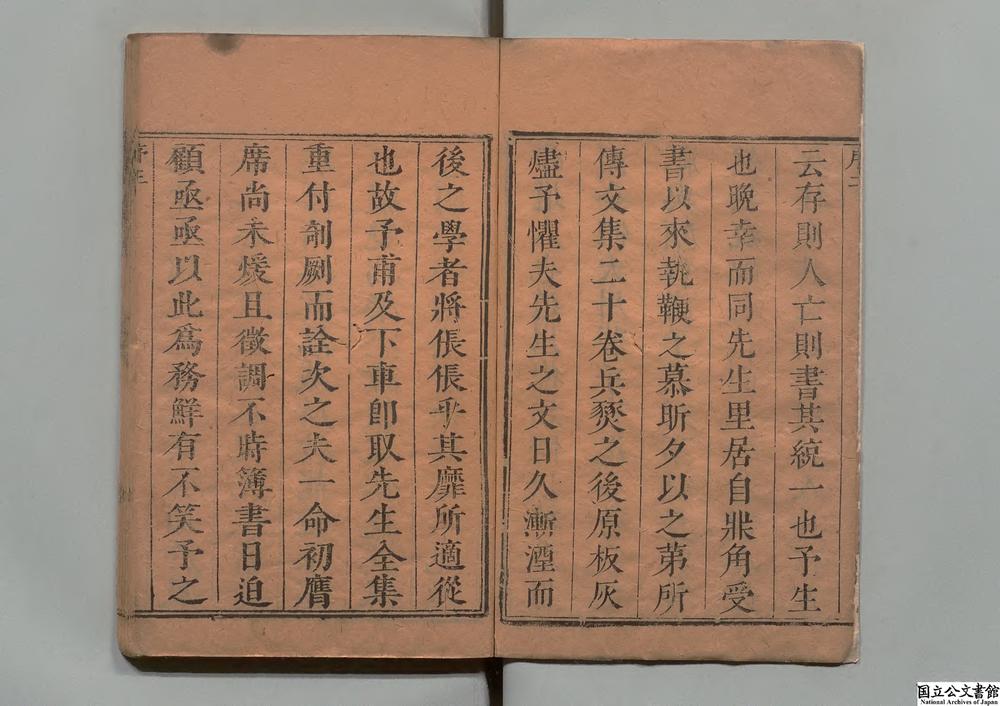 云存則人亡則書其統一也予生
也晩幸而同先生里居自丱角受
書以來執鞭之慕昕夕以之第所
傳文集二十卷兵燹之後原板灰
燼予懼夫先生之文日久漸湮而
後之學者將倀倀乎其靡所適從
也故予甫及下車卽取先生全集
重付剞劂而詮次之夫一命初膺
席尚未煖且徵調不時簿書日迫
顧亟亟以此爲務鮮有不笑予之
国立公文書館
National Archives of Japan